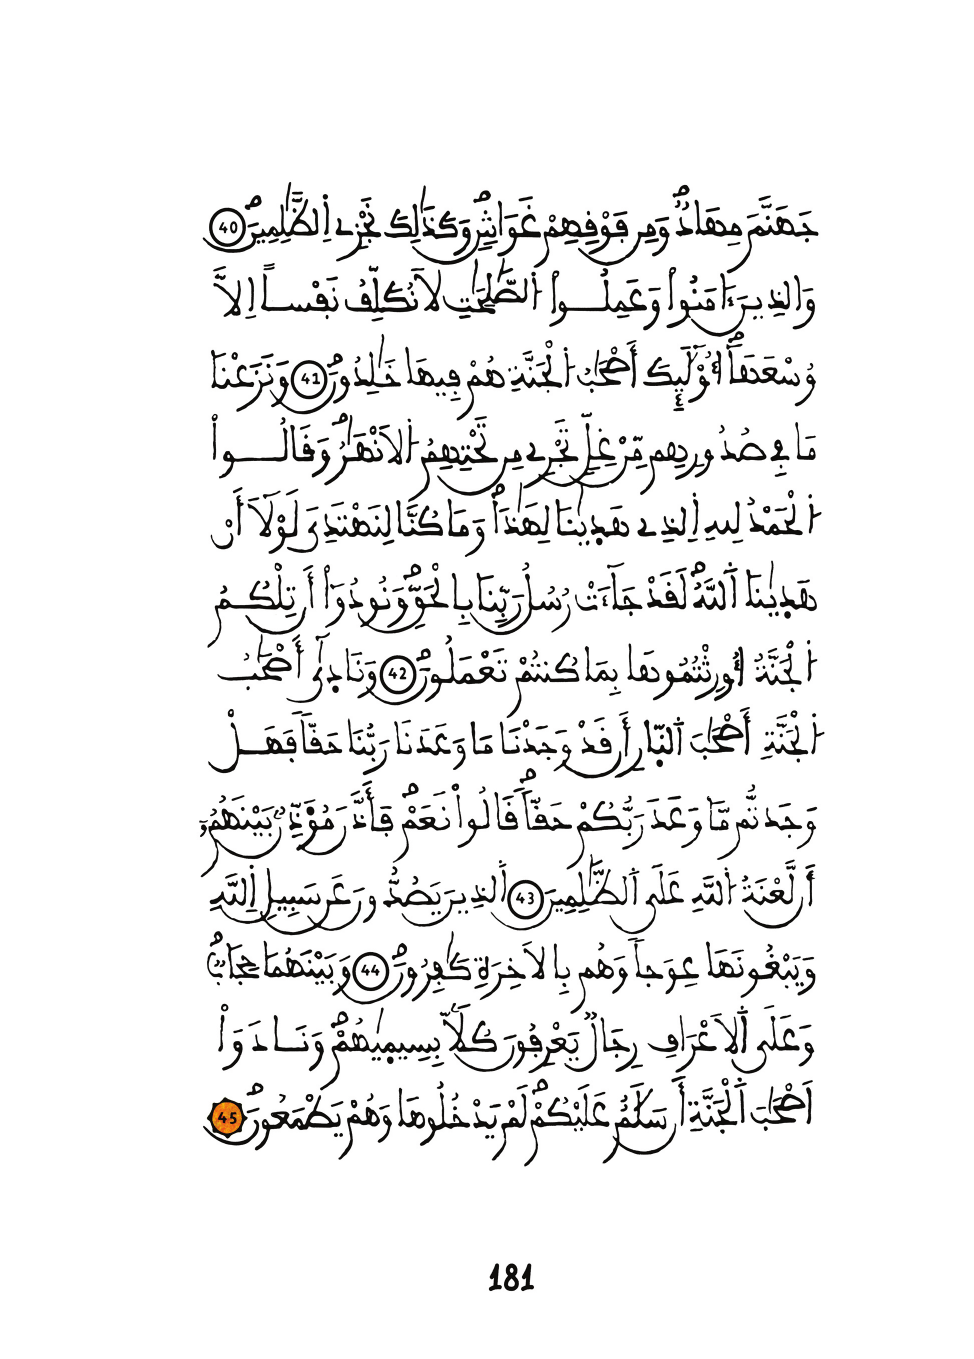 جَهَنَّمَ مِهَادٌ وَمِن فَوْقِهِمْ غَوَاشٍ وَكَذَٰلِكَ نَجْزِے اِ۬لظَّٰلِمِينَ 40
وَالذِينَ ءَامَنُواْ وَعَمِلُواْ اُ۬لصَّٰلِحَٰتِ لَا نُكَلِّفُ نَفْساً اِلَّا
وُسْعَهَا أُوْلَٰٓئِكَ أَصْحَٰبُ اُ۬لْجَنَّةِ هُمْ فِيهَا خَٰلِدُونَ 41 وَنَزَعْنَا
مَا فِے صُدُورِهِم مِّنْ غِلٍّ تَجْرِے مِن تَحْتِهِمُ اُ۬لَانْهَٰرُ وَقَالُواْ
اُ۬لْحَمْدُ لِلهِ اِ۬لذِے هَدَىٰنَا لِهَٰذَا وَمَا كُنَّا لِنَهْتَدِيَ لَوْلَآ أَنْ
هَدَىٰنَا اَ۬للَّهُ لَقَدْ جَآءَتْ رُسُلُ رَبِّنَا بِالْحَقِّ وَنُودُوٓاْ أَن تِلْكُمُ
اُ۬لْجَنَّةُ أُورِثْتُمُوهَا بِمَا كُنتُمْ تَعْمَلُونَ 42 وَنَادَىٰٓ أَصْحَٰبُ
اُ۬لْجَنَّةِ أَصْحَٰبَ اَ۬لنّ۪ارِ أَن قَدْ وَجَدْنَا مَا وَعَدَنَا رَبُّنَا حَقّاً فَهَلْ
وَجَدتُّم مَّا وَعَدَ رَبُّكُمْ حَقّاً قَالُواْ نَعَمْ فَأَذَّنَ مُؤَذِّنٌ بَيْنَهُمُۥٓ
أَن لَّعْنَةُ اُ۬للَّهِ عَلَى اَ۬لظَّٰلِمِينَ 43 اَ۬لذِينَ يَصُدُّونَ عَن سَبِيلِ اِ۬للَّهِ
وَيَبْغُونَهَا عِوَجاً وَهُم بِالَاخِرَةِ كَٰفِرُونَ 44 وَبَيْنَهُمَا حِجَابٌ
وَعَلَى اَ۬لَاعْرَافِ رِجَالٌ يَعْرِفُونَ كُلّاَۢ بِسِيمَىٰهُمْ وَنَادَوَاْ
اَصْحَٰبَ اَ۬لْجَنَّةِ أَن سَلَٰمٌ عَلَيْكُمْ لَمْ يَدْخُلُوهَا وَهُمْ يَطْمَعُونَ 45
181